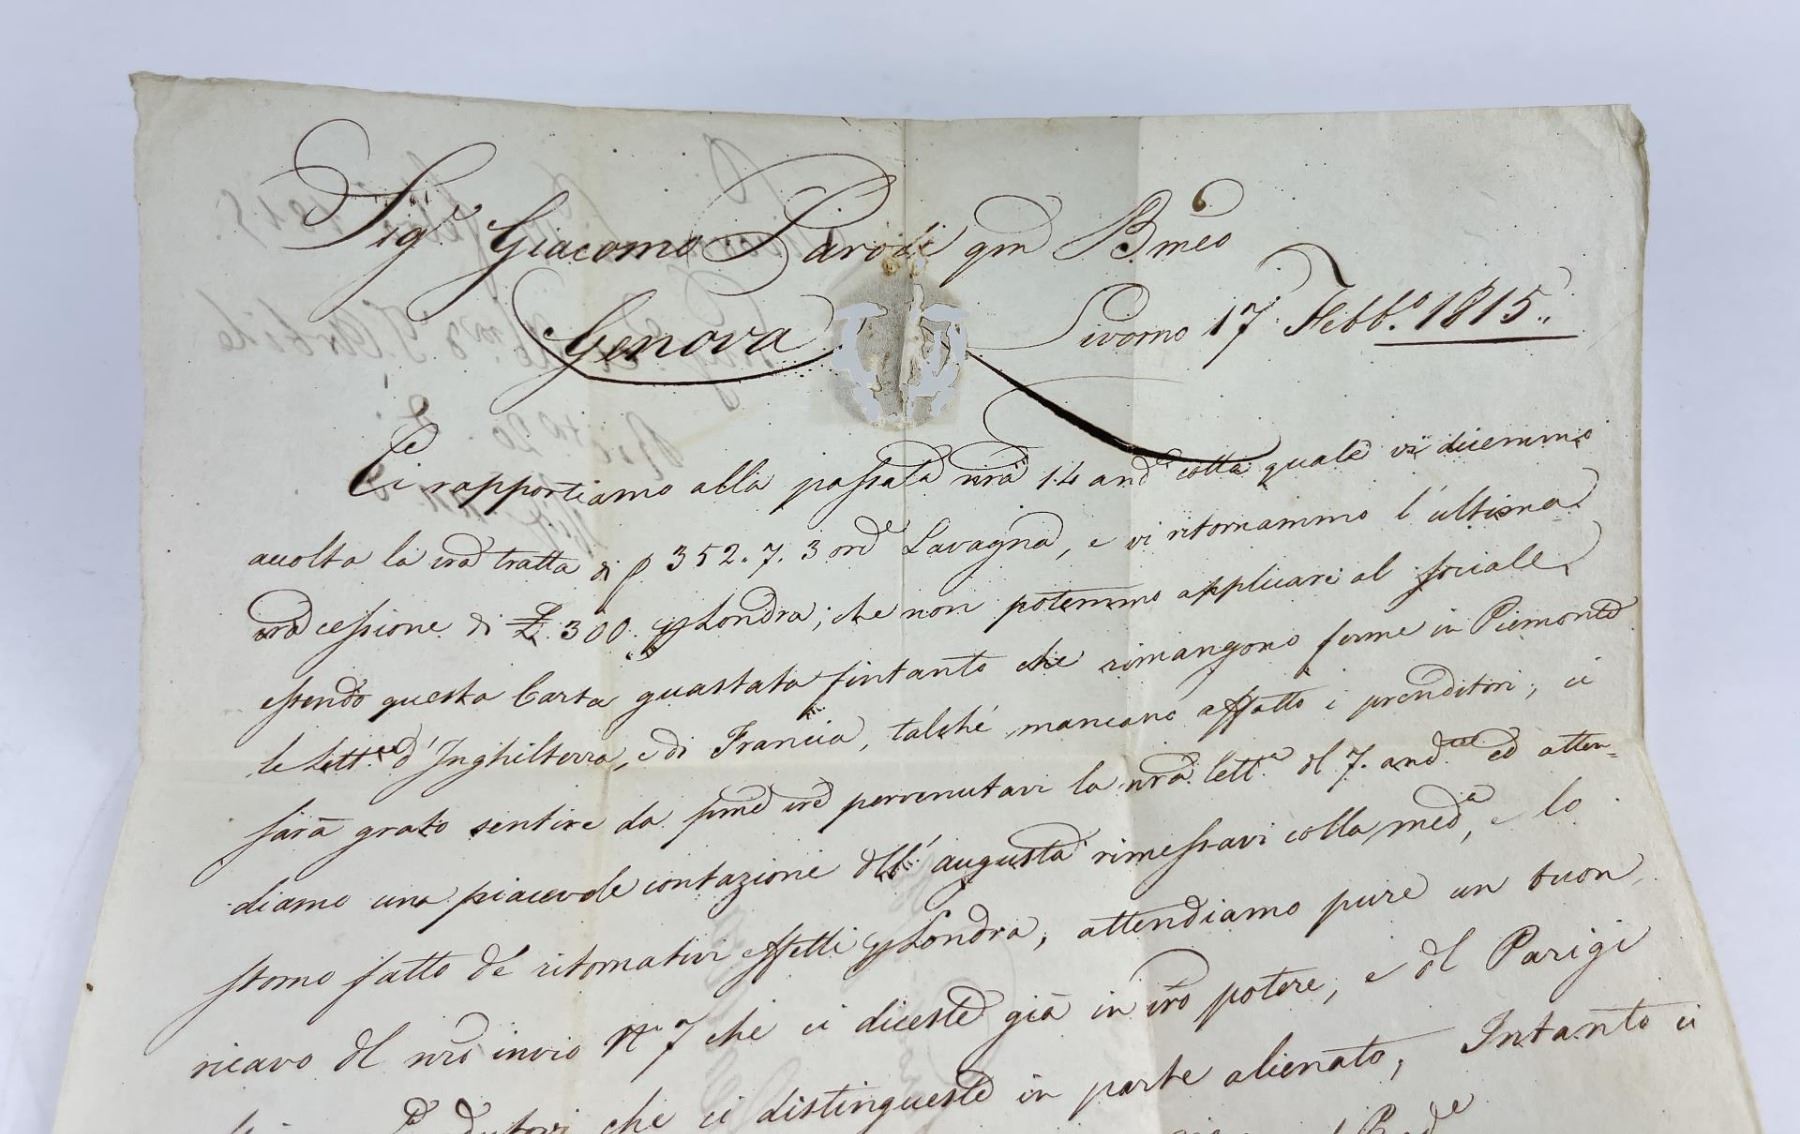 Sig.r Giacomo Parodi qm Bmeo
Genova
Livorno 17 Febb.o 1815.
Ci rapportiamo alla passata nrã 14 and.e colla quale vi dicemmo
accolta la vrã tratta di p 352.7.3 ord.e Lavagna, e vi ritornammo l'ultima
vrã cessione di £ 300. p Londra; che non potemmo applicare al sociale
essendo questa Carta guastata fintanto che rimangono ferme in Piemonte
le Lett.re d'Inghilterra, e di Francia, talché mancano affatto i prenditori; ci
sarà grato sentire da pervenutavi la nrã lett.a del 7. and.te ed atten=
diamo una piacevole contazione dell' augusta rimessavi colla med.a, e lo
storno fatto de ritornativi effetti p Londra, attendiamo pure un buon
ricavo del nrõ invio N.o 7 che ci diceste già in vrõ potere, e del Parigi
che ci distingueste in parte alienato; Intanto ci